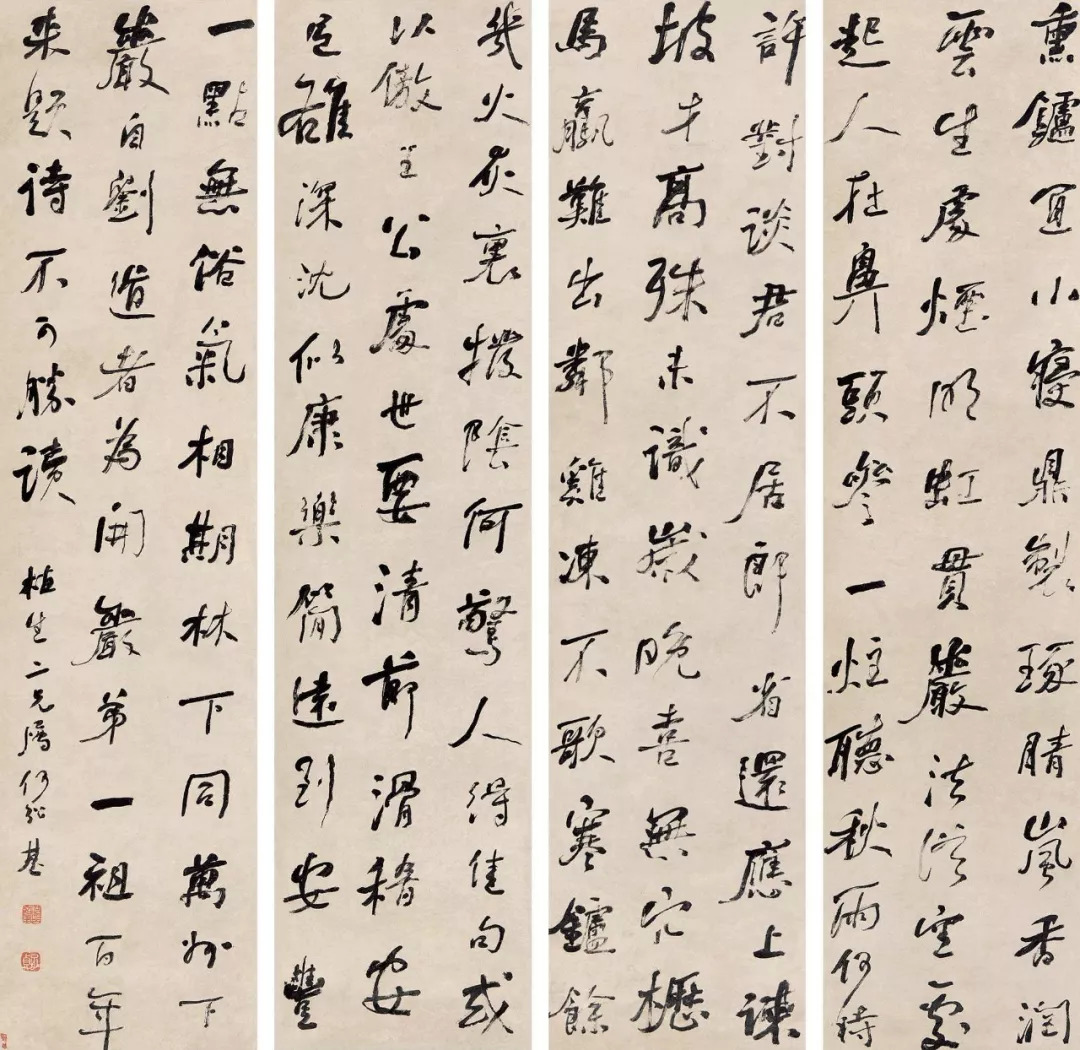 熏鑪宜小寢鼎製琢晴嵐香潤
雲生處煙明虹貫巖法從空處
起人在鼻頭參一炷聽秋雨何時
許對談君不居郎省還應上諫
坡才高殊未識歲晚喜無它櫪
馬羸難出鄰雞凍不歌寒鑪餘
幾火灰裏撥陰何驚人得佳句或
以傲王公處世要清節滑稽安
足雄深沈似康樂簡遠到安豐
一點無俗氣相期林下同萬州下
巖自劉道者為開巖第一祖百年
來題詩不可勝讀 植生二兄屬何紹基